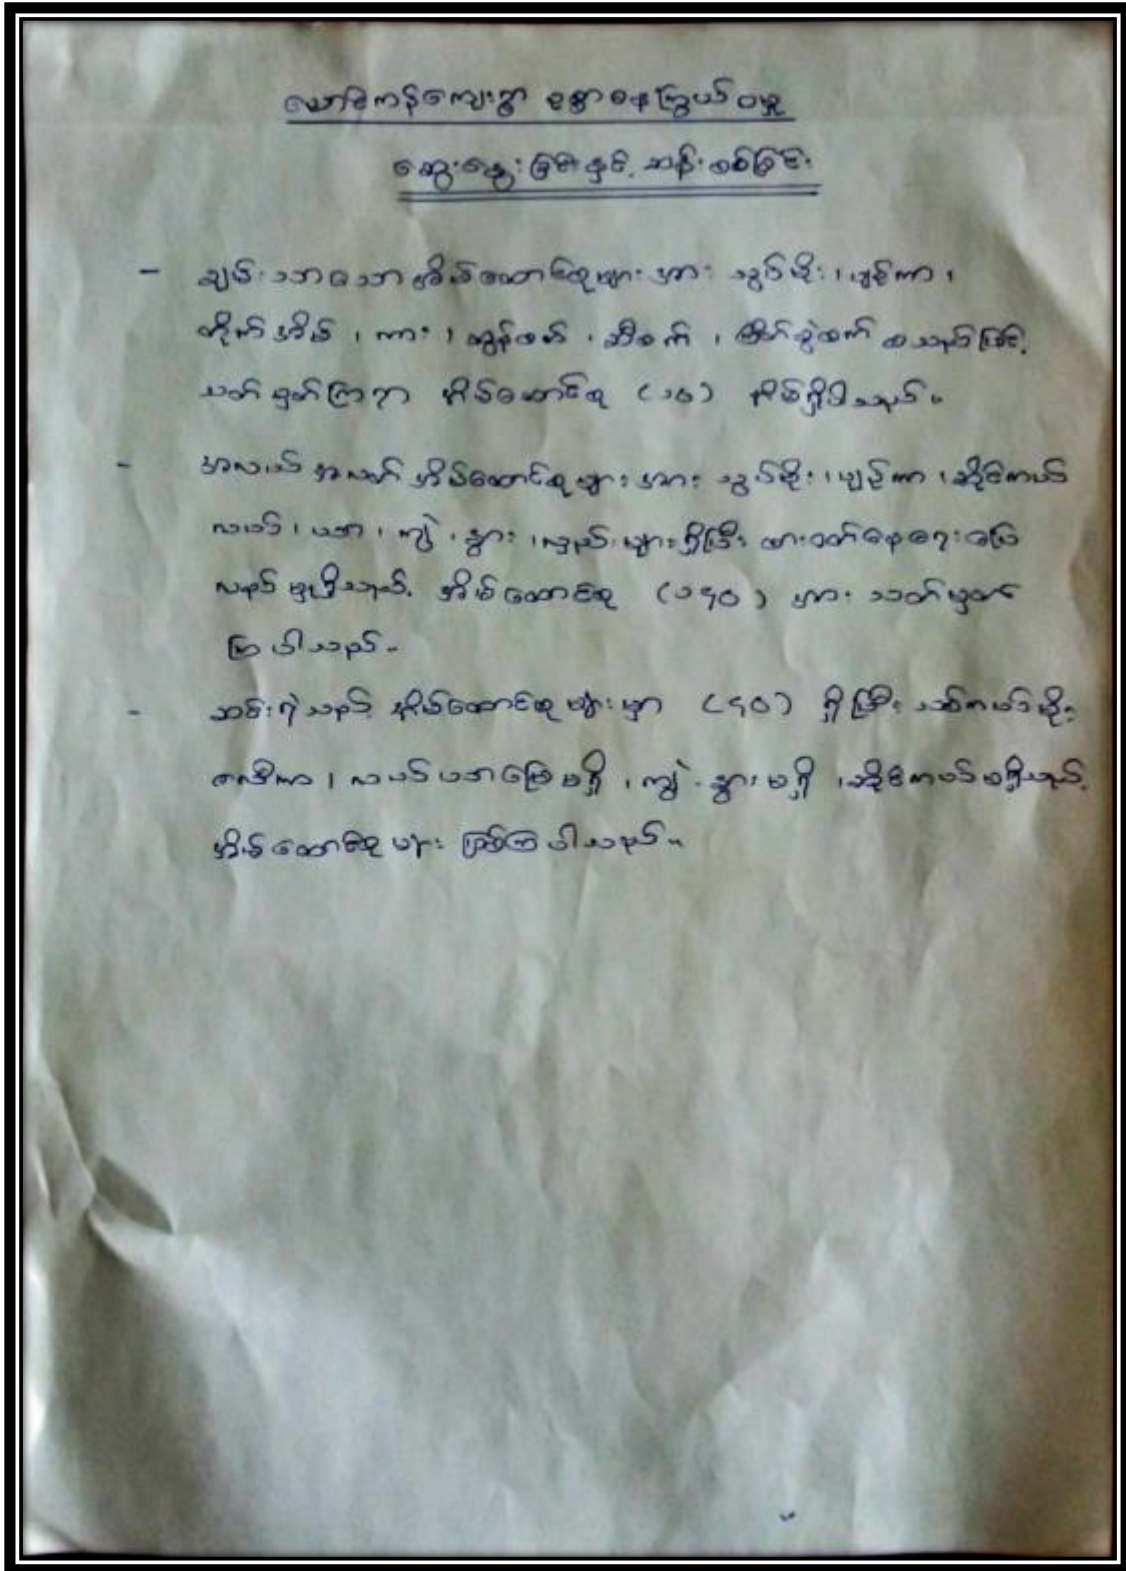 ယောင်ကန်ကျေးရွာ ဥစ္စာဓနကြွယ်ဝမှု
ဆွေးနွေးခြင်းနှင့် ဆန်းစစ်ခြင်း
- ချမ်းသာသောအိမ်ထောင်စုများအား သွပ်မိုး၊ ပျဉ်ကာ၊
တိုက်အိမ်၊ ကား၊ ထွန်စက်၊ ဆီစက်၊ ကြိတ်ခွဲစက် စသည်ဖြင့်
သတ်မှတ်ကြရာ အိမ်ထောင်စု (၁၀) အိမ်ရှိပါသည်။
- အလယ်အလတ်အိမ်ထောင်စုများအား သွပ်မိုး၊ ပျဉ်ကာ၊ ဆိုင်ကယ်
လယ်၊ ယာ၊ ကျွဲ၊ နွား၊ လှည်းများရှိပြီး စားဝတ်နေရေးပြေ
လည်မှုရှိသည့် အိမ်ထောင်စု (၁၄၀) အား သတ်မှတ်
ကြပါသည်။
- ဆင်းရဲသည့် အိမ်ထောင်စုများမှာ (၄၀) ရှိပြီး သက်ကယ်မိုး
ထရံကာ၊ လယ်ယာမြေမရှိ၊ ကျွဲ၊ နွားမရှိ၊ ဆိုင်ကယ်မရှိသည့်
အိမ်ထောင်စုများ ဖြစ်ကြပါသည်။